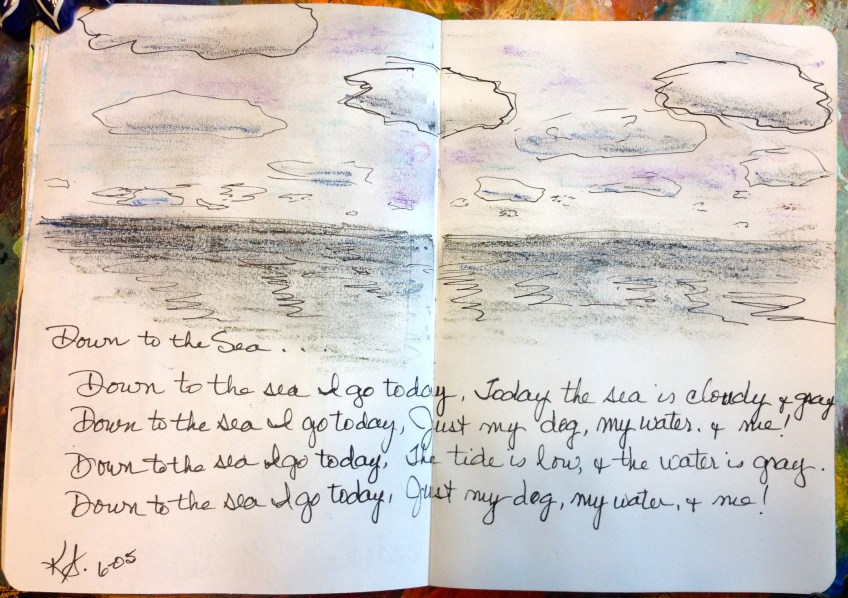 Down to the Sea . . . .
Down to the sea I go today, Today the sea is cloudy & gray
Down to the sea I go today, Just my dog, my water, & me!
Down to the sea I go today, The tide is low, & the water is gray.
Down to the sea I go today, Just my dog, my water, & me!
6-05